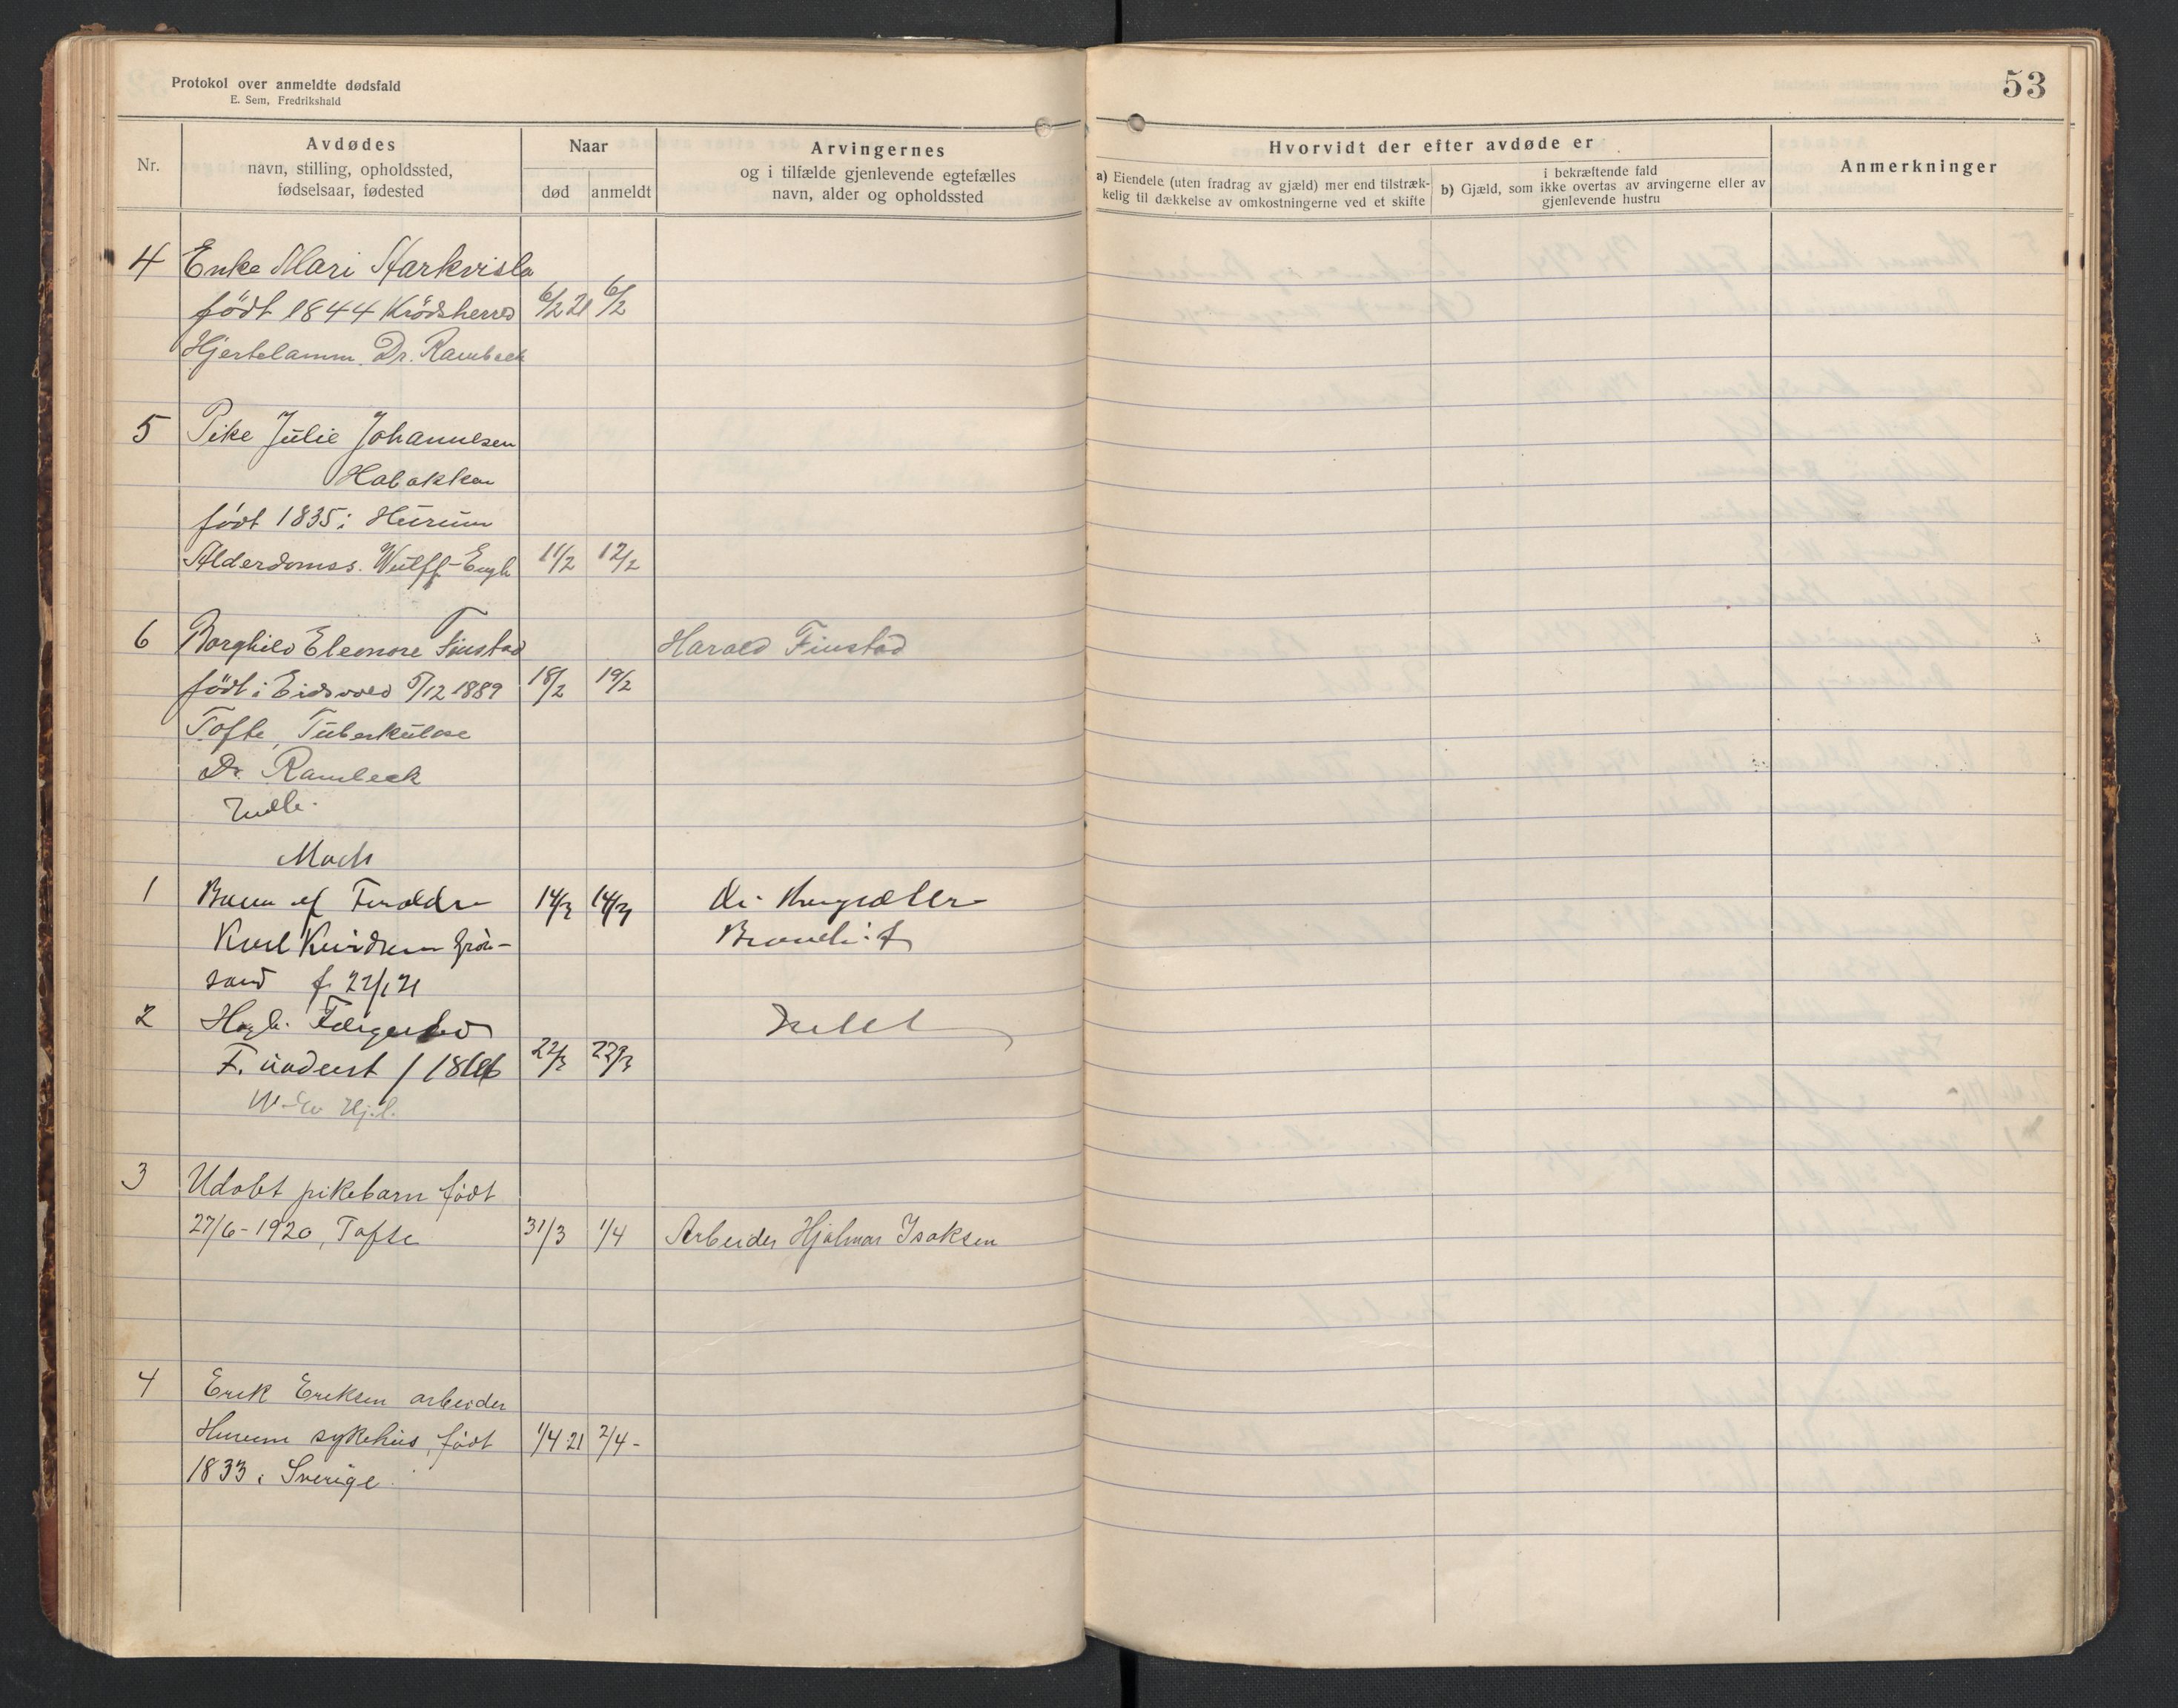 Protokol over anmeldte dødsfald
E. Sem, Fredrikshald
53
Nr.
Avdødes
navn, stilling, opholdssted,
fødselsaar, fødested
Naar
død
anmeldt
Arvingernes
og i tilfælde gjenlevende egtefælles
navn, alder og opholdssted
Hvorvidt der efter avdøde er
a) Eiendele (uten fradrag av gjæld) mer end tilstræk-
kelig til dækkelse av omkostningerne ved et skifte
i bekræftende fald
b) Gjæld, som ikke overtas av arvingerne eller av
gjenlevende hustru
Anmerkninger
4 Enke Mari
født 1844 Krödsherred 6/2 21 6/2
Hjertelamm. Dr. Rambeck
5 Pike Julie Johannesen
Habakken
født 1835 i Hurum
Alderdomss. Wulff-Engh 11/2 12/2
6 Borghild Eleonore Finstad Harald Finstad
født i Eidsvold 5/12 1889 18/2 19/2
Tofte, Tuberkulose
Dr. Rambeck
Marts
1 Barn af 14/3 14/3
Karl
sand f. 22/1 21
2
F. 22/3 22/3
3 Udøbt pikebarn født
27/6-1920, Tofte 31/3 1/4 Arbeider Hjalmar Isaksen
4 Erik Eriksen arbeider
Hurum sykehus, født 1/4 21 2/4-
1833 i Sverige.